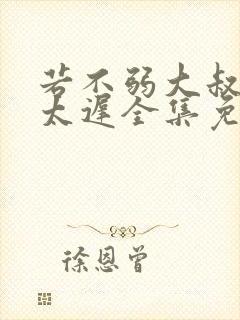 若不弱大叔
太遲全集免
徐恩曾